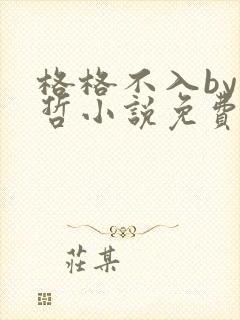 格格不入by
哲小說免費
莊某